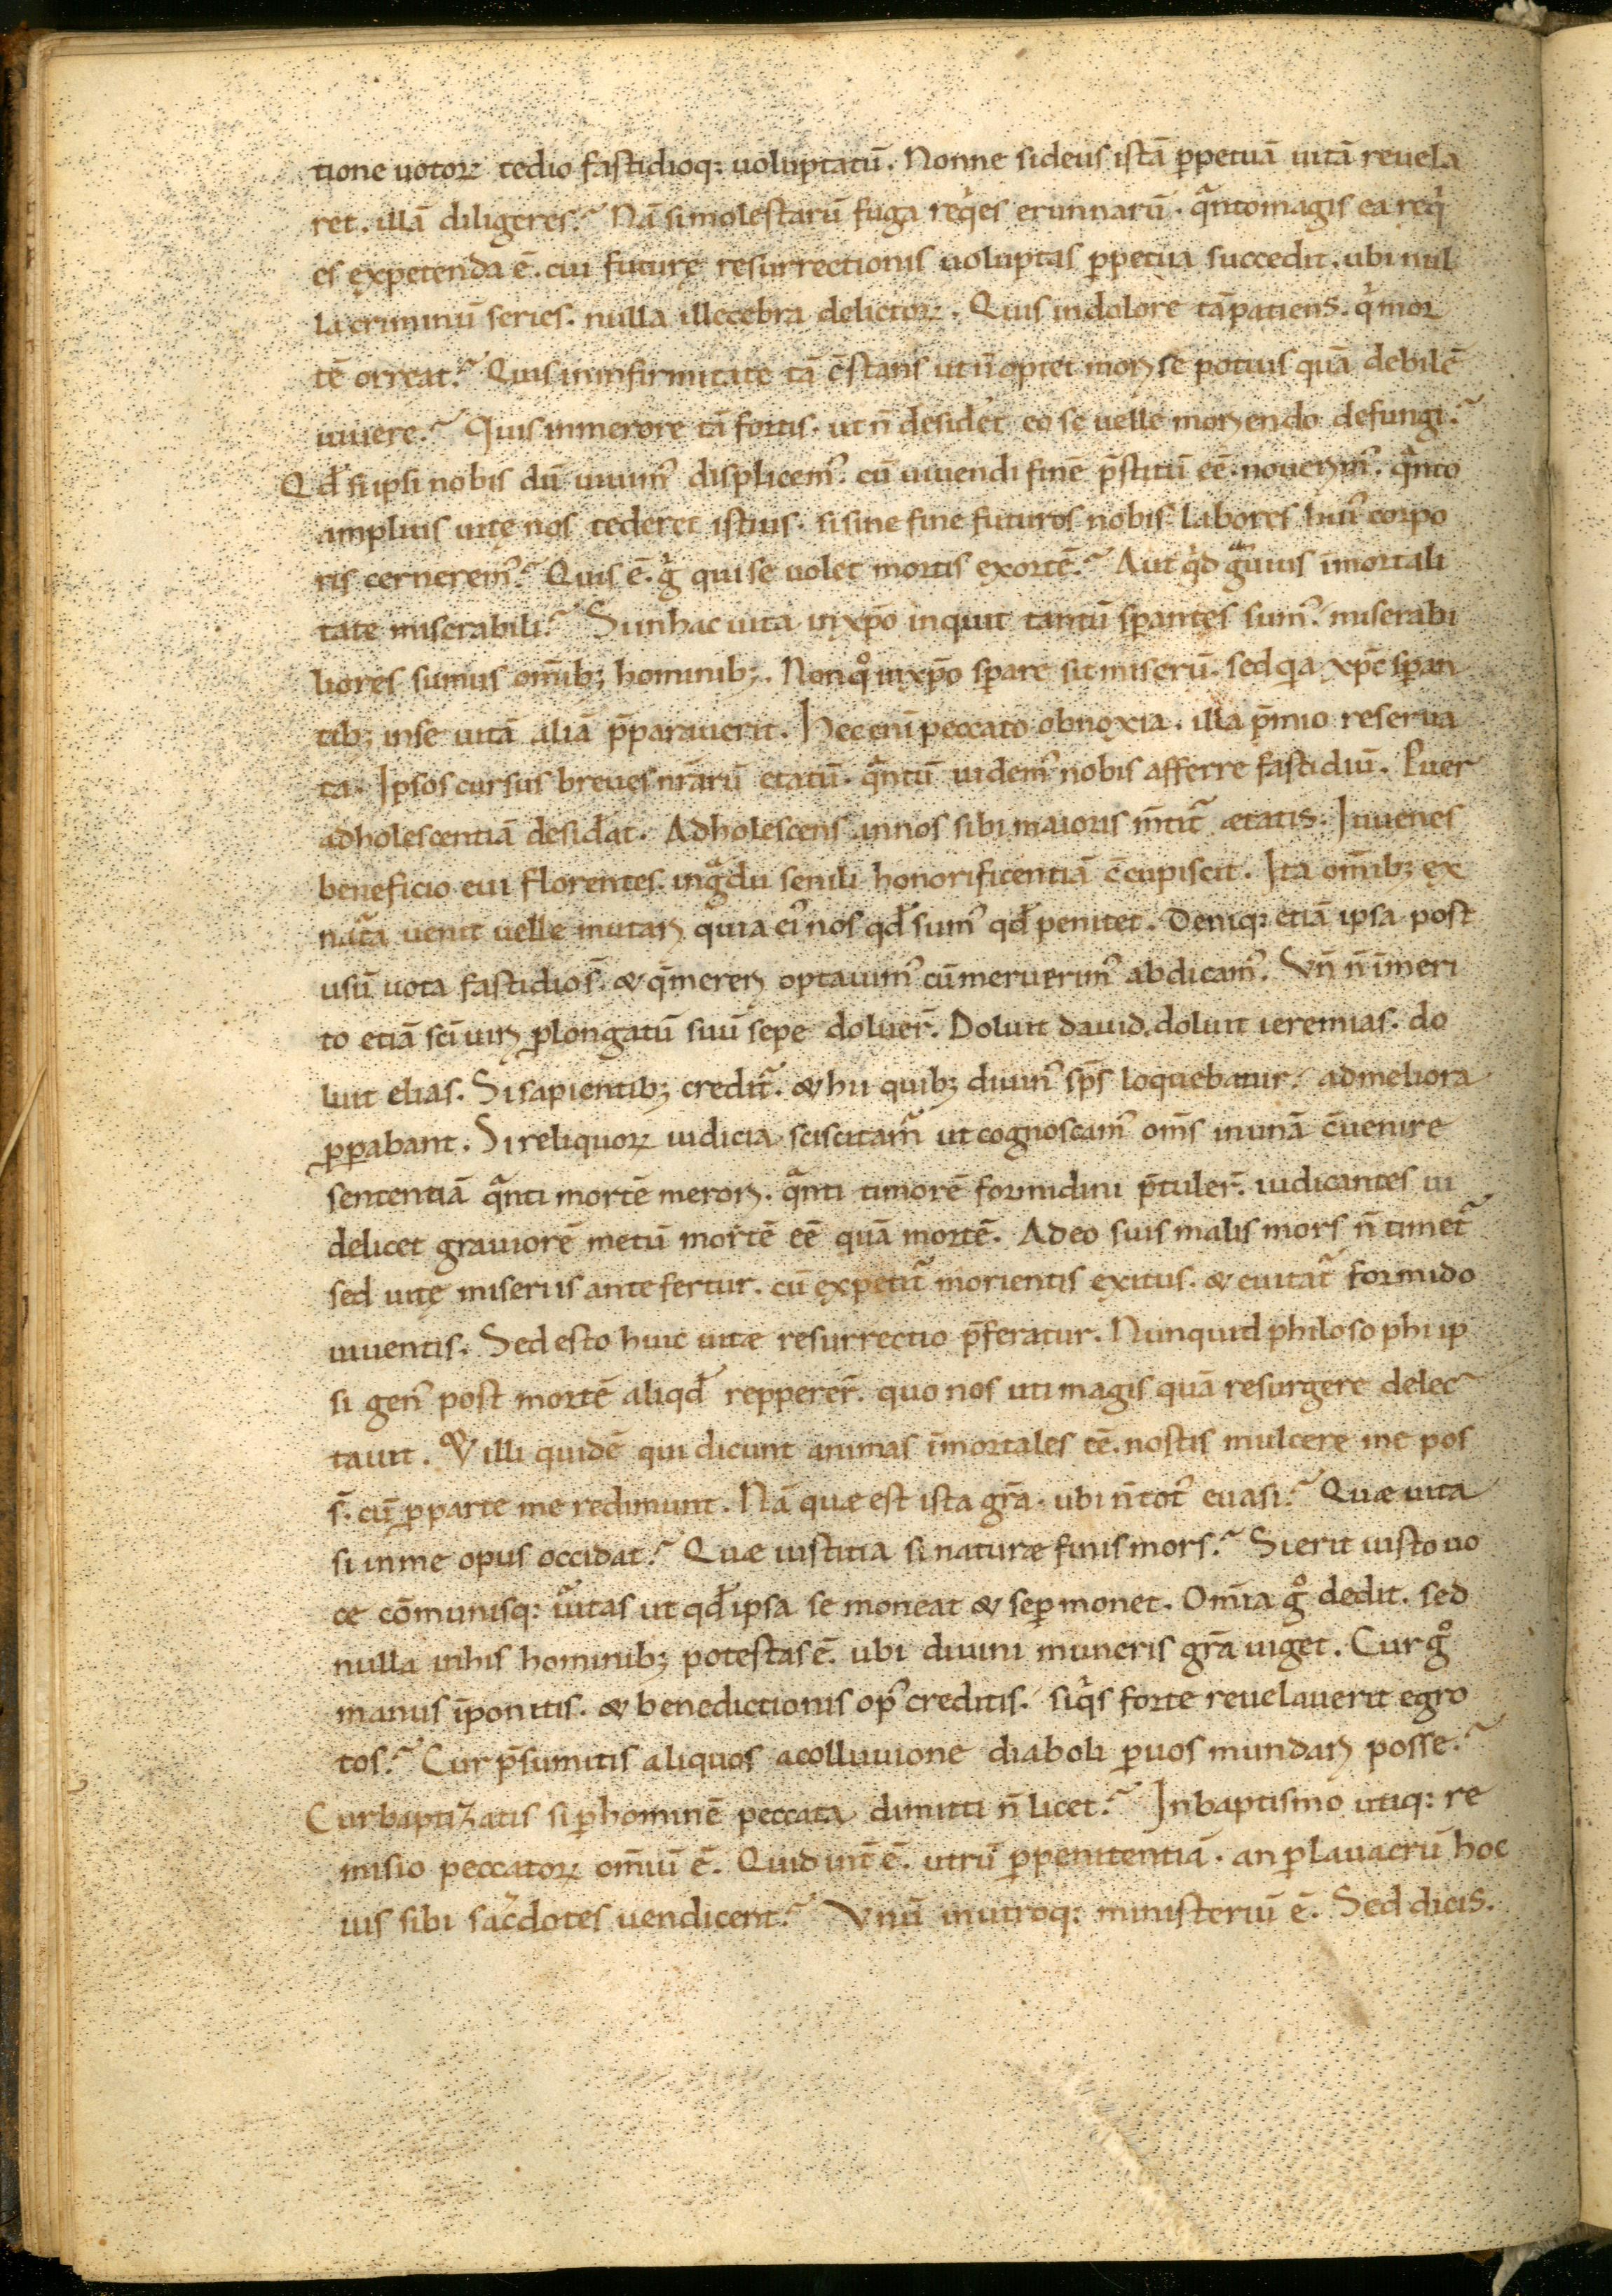 tione uotoꝝ tedio fastidioq: uoluptatū. Nonne si deus istā ꝑpetuā uitā reuela
ret. illā diligeres? Nā si molestarū fuga req̇es erumnarū. qᷓnto magis ea req̇
es expetenda ē. cui futurę resurrectionis uoluptas ꝑpetua succedit. ubi nul
la criminū series. nulla illecebra delictoꝝ. Quis in dolore tā patiens. q̇ mor
tē orreat? Quis in infirmitate tā c̄stans ut n̄ optet moꝶ se potius quā debilē
uiuere? Quis in merore tā fortis. ut n̄ desid̓et eo se uelle moꝶendo defungi?
Qđ si ipsi nobis dū uiuim᾿ displicem᾿. cū uiuendi finē p̄stitū eē. nouerim᾿. qᷓnto
amplius uitę nos tederet istius. si sine fine futuros nobis labores hui᾿ corpo
ris cernerem᾿? Quis ē. g̊ qui se uolet mortis exortē? Aut q̇d gᷓuius īmortali
tate miserabili? Si in hac uita in xp̄o inquit tantū sꝑantes sum᾿. miserabi
liores sumus om̄ib; hominib;. Non qͦ in xp̄o sꝑare sit miserū. sed qa xp̄c sꝑan
tib; in se uitā aliā p̄parauerit. Hec eni peccato obnoxia. illa p̄mio reserua
ta. Ipsos cursus breues nr̄arū etatū. qᷓntū uidem᾿ nobis afferre fastidiū. Puer
adholescentiā desid̓at. Adholescens annos sibi maioris m̄titᷓ ætatis. Iuuenes
beneficio eui florentes. in gᷓdu senili honorificentiā c̄cupiscit. Ita om̄ib; ex
natᷓa uenit uelle mutaꝶ quia ei᾿ nos qđ sum᾿ qđ penitet. Deniq: etiā ipsa post
usū uota fastidio s̄. & q̄ mereꝶ optauim᾿ cū meruerim᾿ abdicam᾿. Vn̄ n̄ īmeri
to etiā sc̄i uiꝶ ꝓlongatū suū sepe doluer̄. Doluit dauid. doluit ieremias. do
luit elias. Si sapientib; creditᷓ. & hii quib; diuin᾿ sp̄s loquebatur. ad meliora
ꝓꝑabant. Si reliquoꝝ iudicia sciscitam̄ ut cognoscam᾿ om̄s in unā c̄uenire
sententiā qᷓnti mortē meroꝶ. qᷓnti timorē formidini p̄tuler̄. iudicantes ui
delicet grauiorē metū mortē eē quā mortē. Adeo suis malis mors n̄ timetᷓ
sed uitę miseriis ante fertur. cū expetitᷓ morientis exitus. & euitatᷓ formido
uiuentis. Sed esto huic uitæ resurrectio p̄feratur. Nunquid philosophi ip
si gen᾿ post mortē aliqđ repperer̄. quo nos uti magis quā resurgere delec
tauit. & illi quidē qui dicunt animas īmortales eē. nostis mulcere me pos
s̄. cū ꝑ parte me redimunt. Nā quæ est ista gr̄a. ubi n̄ tot᾿ euasi? Quæ uita
si in me opus occidat? Quæ iustitia si naturæ finis mors? Si erit iusto uo
ce cōmunisq: uᷓitas ut qđ ipsa se moneat & seꝑ monet. Om̄ia gͦ dedit. sed
nulla in his hominib; potestas ē. ubi diuini muneris gr̄a uiget. Cur gͦ
manus īponitis. & benedictionis op᾿ creditis. siq̇s forte reuelauerit egro
tos? Cur p̄sumitis aliquos a colluuione diaboli ꝑ uos mundaꝶ posse?
Cur baptizatis si ꝑ hominē peccata dimitti n̄ licet? In baptismo utiq: re
misio peccatoꝝ om̄iū ē. Quid int̄ ē. utrū ꝑ penitentiā. an ꝑ lauacrū hoc
ius sibi sac̓dotes uendicent? Vnū in utroq: ministeriū ē. Sed dicis.